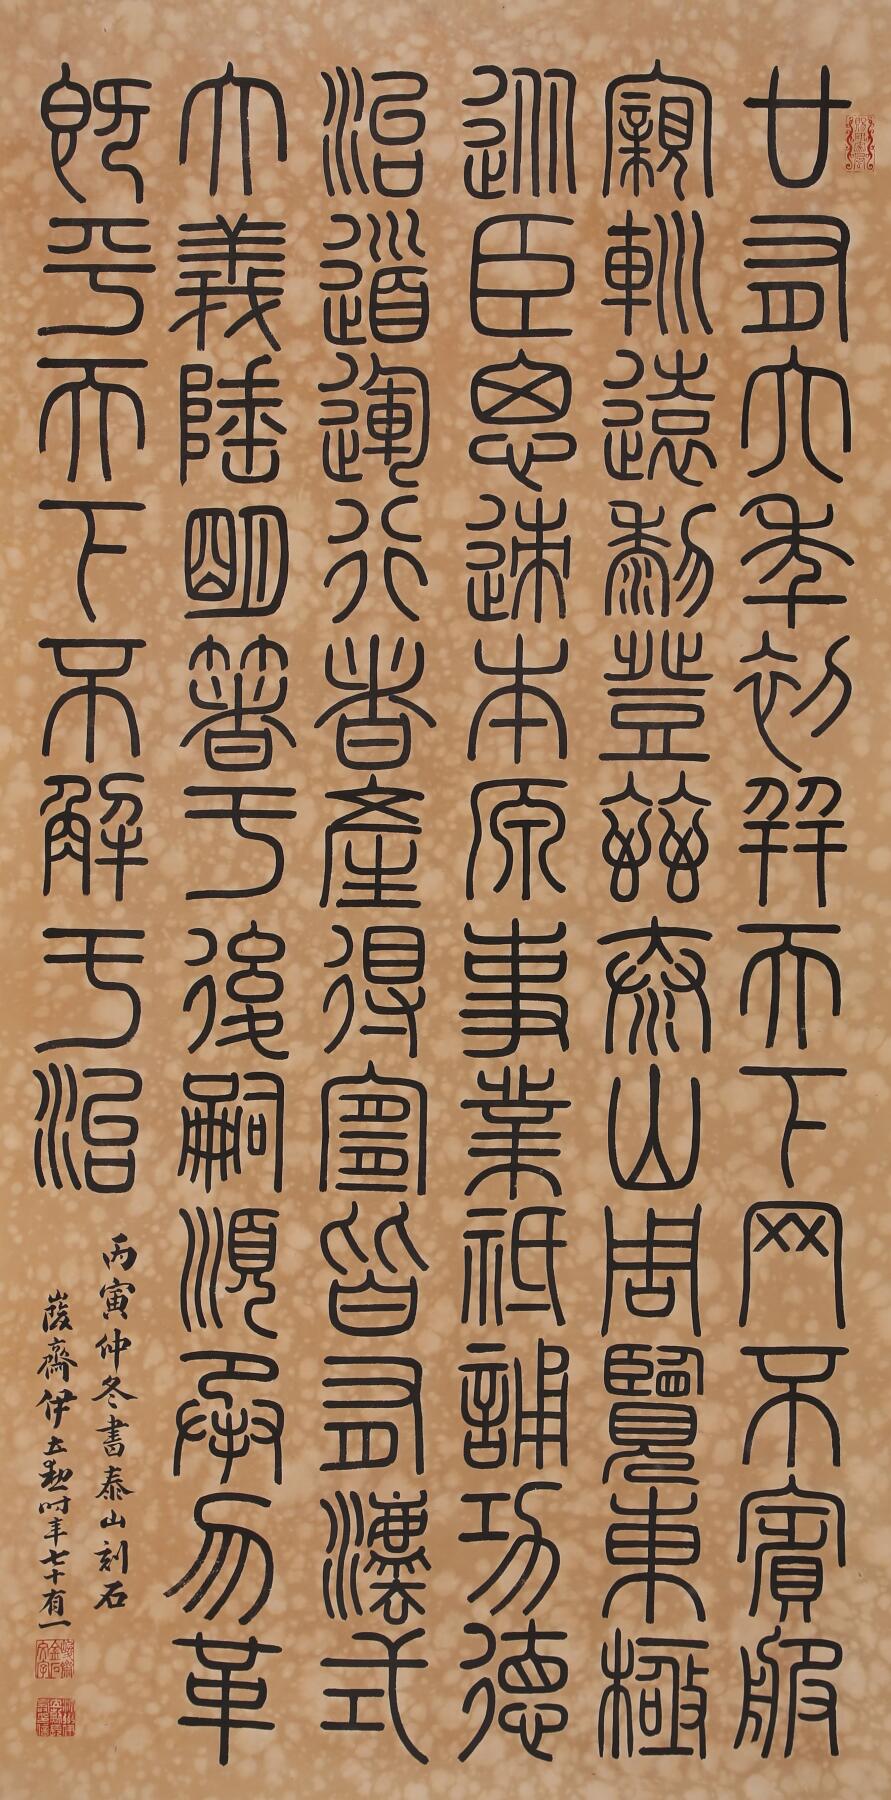 廿有六年初并天下罔不賓服
寴巡遠黎登茲泰山周覽東極
從臣思迹本原事業祗誦功德
治道運行者產得宜皆有灋式
大義陲明箸于後嗣順承勿革
既平天下不解于治
丙寅仲冬書泰山刻石
峻齋伊立勳時年七十有一